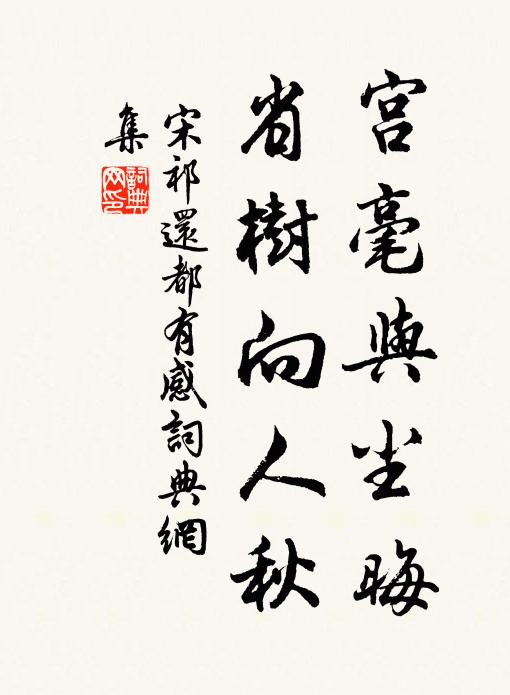 宮毫與坐晦
省樹向人秋
宋祁還都有感詞典網
集
詞典
网印